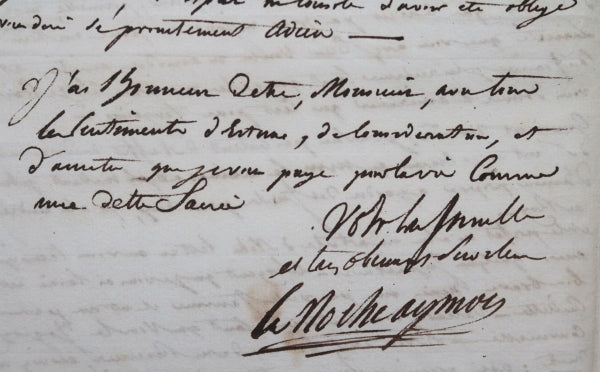 d'avoir été obligé
de promptement adieu —
J'ai l'honneur d'etre, Monsieur, avec tous
les sentiments d'Estime, de Consideration, et
d'amitié que je vous paye Comme
une dette Sacrée
Votre tres humble
et tres obeissant Serviteur
La Rocheaymon